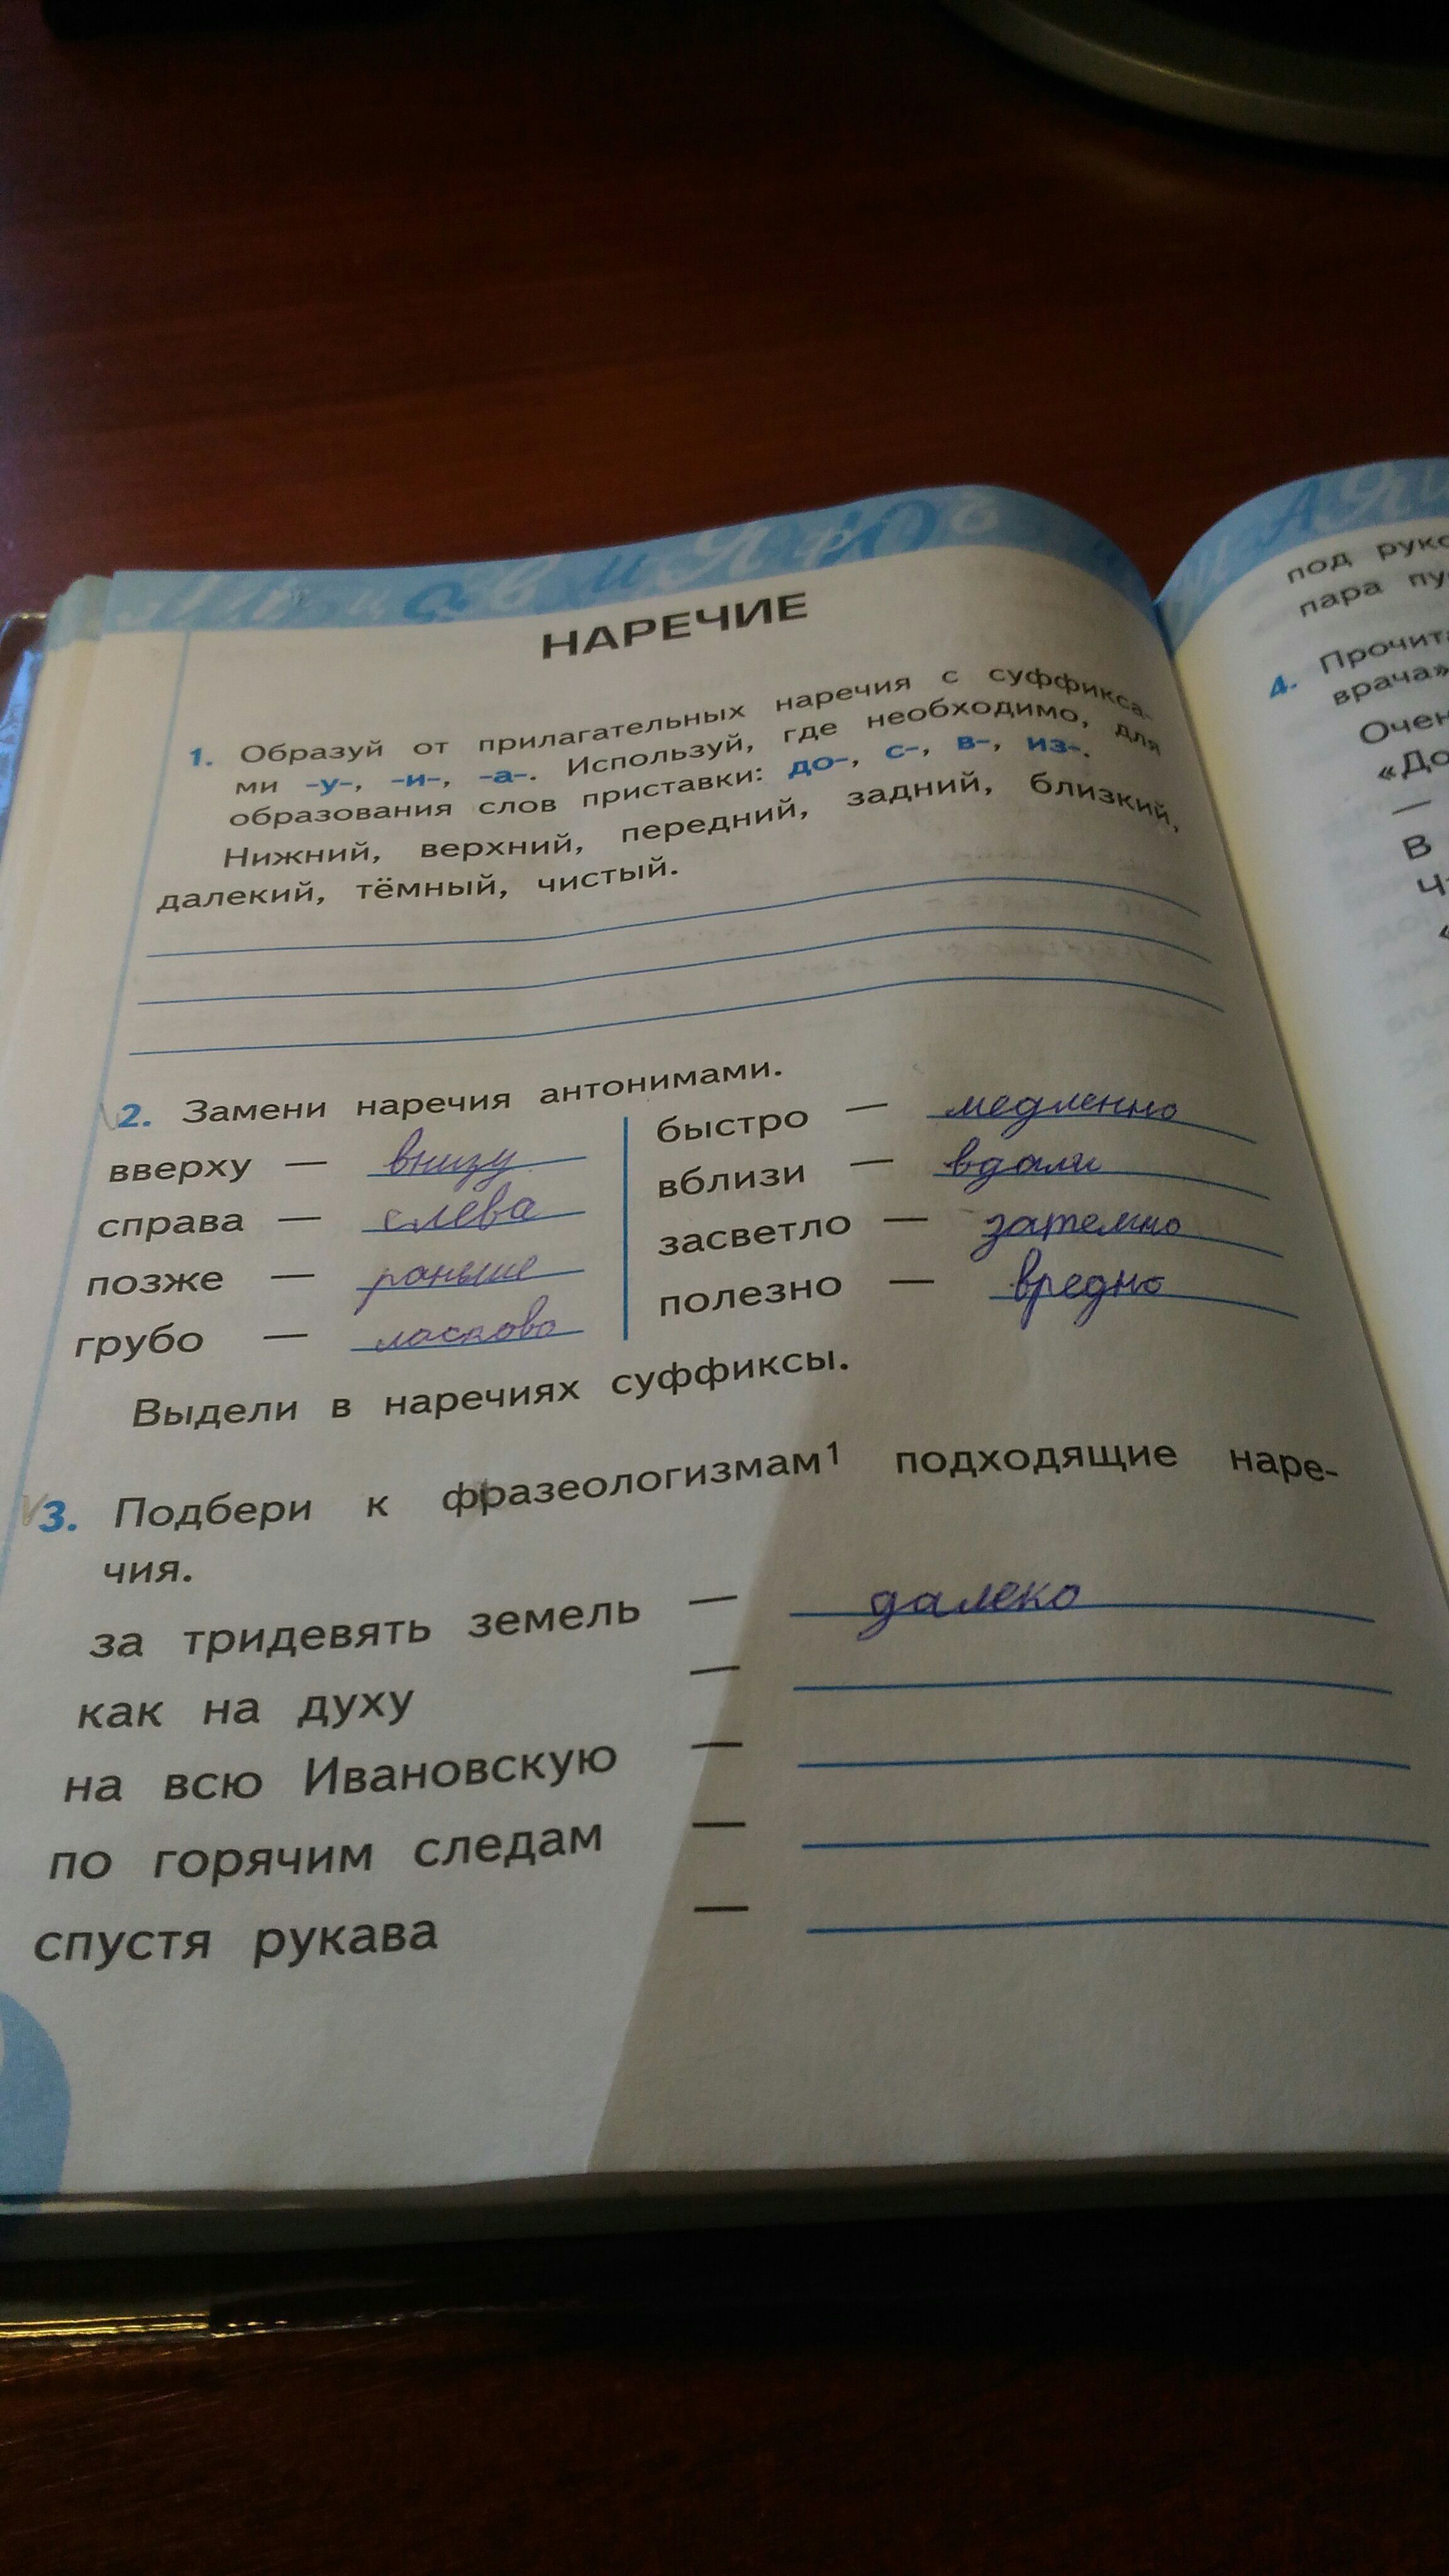 НАРЕЧИЕ
1. Образуй от прилагательных наречия с суффикса-
ми -у-, -и-, -а-. Используй, где необходимо, для
образования слов приставки: до-, с-, в-, из-.
Нижний, верхний, передний, задний, близкий,
далекий, тёмный, чистый.
2. Замени наречия антонимами.
вверху — внизу
справа — слева
позже — раньше
грубо — ласково
быстро — медленно
вблизи — вдали
засветло — затемно
полезно — вредно
Выдели в наречиях суффиксы.
3. Подбери к фразеологизмам¹ подходящие наре-
чия.
за тридевять земель — далеко
как на духу —
на всю Ивановскую —
по горячим следам —
спустя рукава —
под
пара
4. Прочит
врача»
Очен
«До
—
В